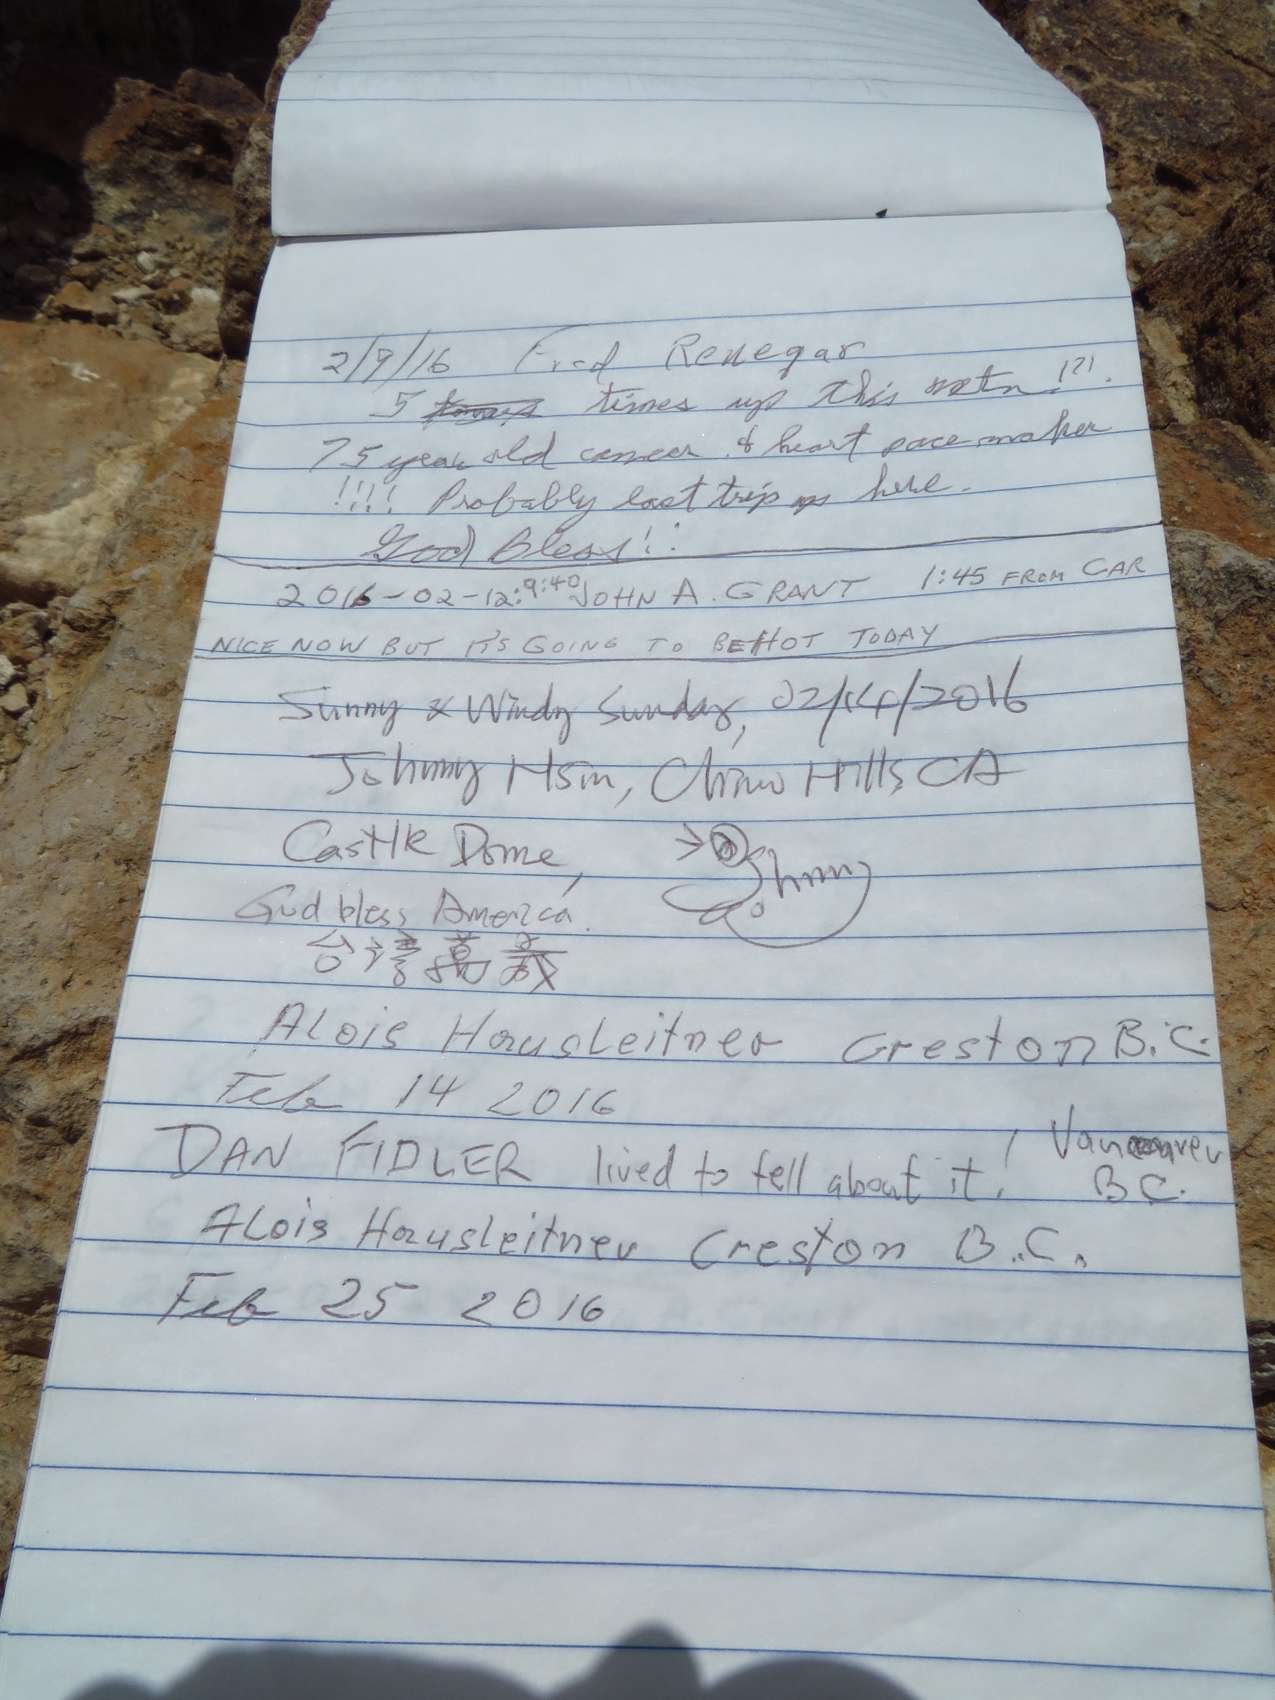 2/9/16 Fred Renegar
5 times up this mtn !?!.
75 year old cancer & heart pace maker
!!!! Probably last trip up here.
God Bless!
2016-02-12: 9:40 JOHN A. GRANT 1:45 FROM CAR
NICE NOW BUT IT'S GOING TO BE HOT TODAY
Sunny & Windy Sunday, 02/14/2016
Johnny Hsin, Chino Hills, CA
Castle Dome, Johnny
God bless America.
台湾萬歲
Alois Hausleitner Creston B.C.
Feb 14 2016
DAN FIDLER lived to tell about it! Vancouver
BC.
Alois Hausleitner Creston B.C.
Feb 25 2016